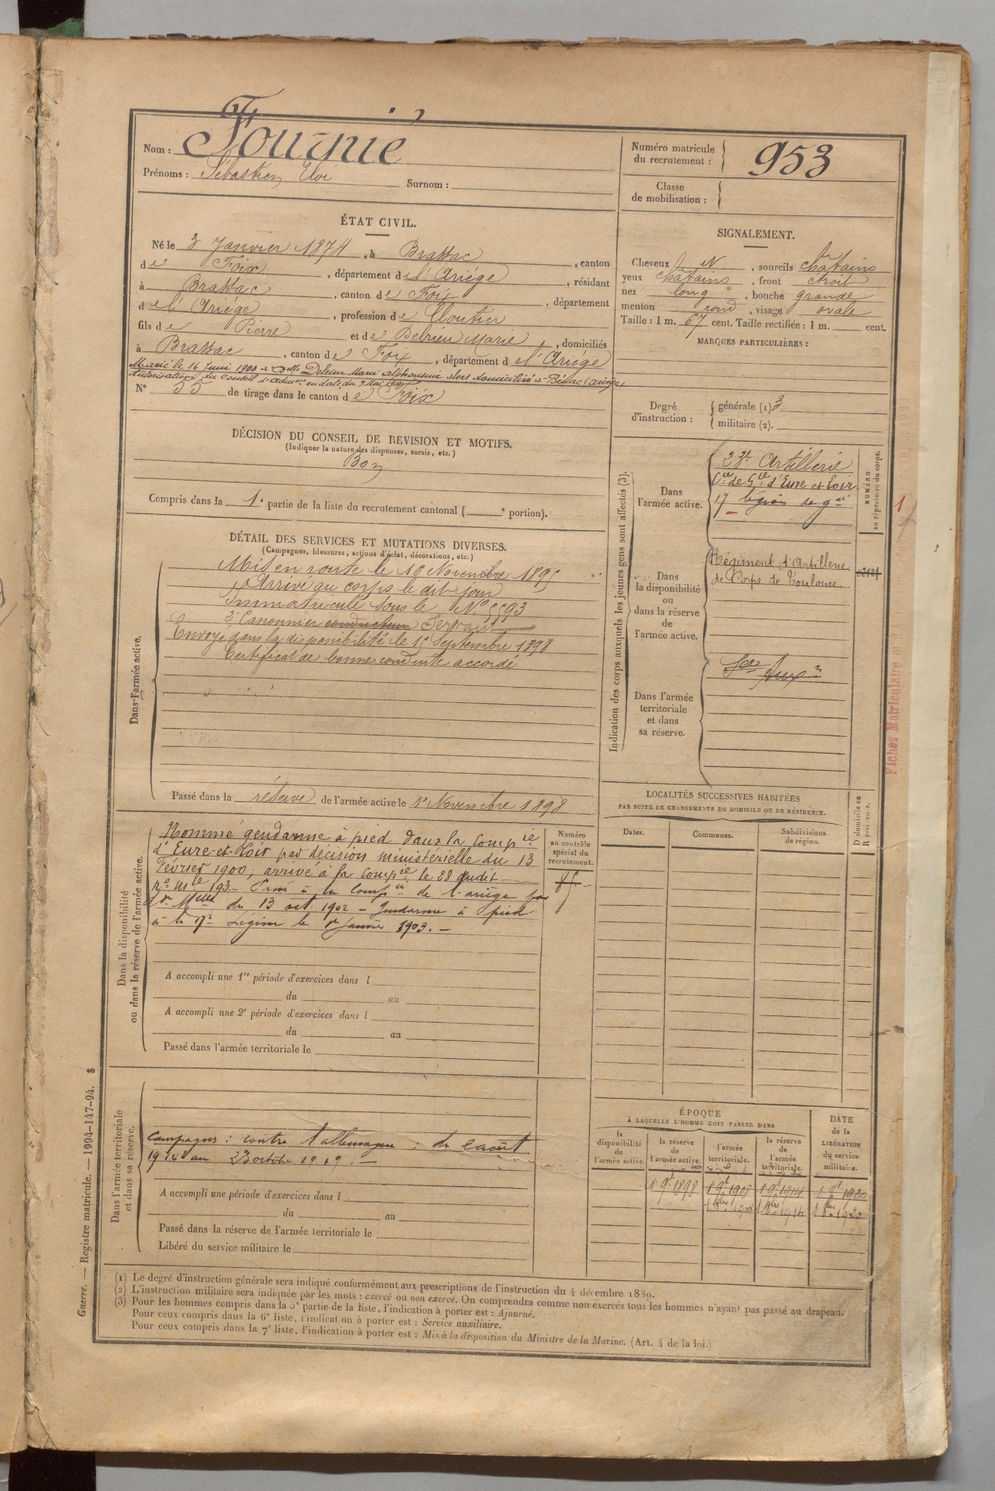 Nom : Fouguié
Prénoms : Sébastien Eloi Surnom :
Numéro matricule du recrutement : 953
Classe de mobilisation :
ÉTAT CIVIL.
Né le 3 Janvier 1874, à Brassac, canton
de Foix, département de l'Ariège, résidant
à Brassac, canton de Foix, département
de l'Ariège, profession de Cloutier
fils de Pierre et de Debrieu Marie, domiciliés
à Brassac, canton de Foix, département de l'Ariège
Marié le 16 Juin 1900 à Marie Alphonsine alors domiciliée à Bénac (Ariège)
Autorisation du conseil d'admon en date du 9 Mai
N° 55 de tirage dans le canton de Foix
SIGNALEMENT.
Cheveux N, sourcils chatains
yeux chatains, front étroit
nez long, bouche grande
menton rond, visage ovale
Taille : 1 m. 67 cent. Taille rectifiée : 1 m. cent.
MARQUES PARTICULIÈRES :
Degré d'instruction : générale (1) 3
militaire (2).
DÉCISION DU CONSEIL DE REVISION ET MOTIFS.
(Indiquer la nature des dispenses, sursis, etc.)
Bon
Compris dans la 1e partie de la liste du recrutement cantonal ( e portion).
DÉTAIL DES SERVICES ET MUTATIONS DIVERSES.
(Campagnes, blessures, actions d'éclat, décorations, etc.)
Dans l'armée active.
Mis en route le 16 Novembre 1895
Arrivé au corps le dit jour
Immatriculé sous le N° 5593
2e Canonnier conducteur Servant
Envoyé dans la disponibilité le 1er Septembre 1898
Certificat de bonne conduite accordé
Passé dans la réserve de l'armée active le 1er Novembre 1898
Indication des corps auxquels les jeunes gens sont affectés (3).
Dans l'armée active.
23e Artillerie
Cie de Gie d'Eure et Loir
17 légion de gie
NUMÉRO au répertoire du corps.
1
Dans la disponibilité ou dans la réserve de l'armée active.
Régiment d'Artillerie
de Corps de Toulouse
Dans l'armée territoriale et dans sa réserve.
Fiches Matriculaire
Dans la disponibilité ou dans la réserve de l'armée active.
Nommé gendarme à pied dans la compie
d'Eure-et-Loir par décision ministérielle du 13
Février 1900, arrivé à la compie le 28 dudit
n° mle 193 - Passé à la compie de l'ariège par
don Melle du 13 oct 1902 - Gendarme à pied
à la 17e Légion le 1er janvier 1903. -
Numéro au contrôle spécial du recrutement.
A accompli une 1re période d'exercices dans l
du au
A accompli une 2e période d'exercices dans l
du au
Passé dans l'armée territoriale le
LOCALITÉS SUCCESSIVES HABITÉES
PAR SUITE DE CHANGEMENTS DE DOMICILE OU DE RÉSIDENCE.
Dates. Communes. Subdivisions de région.
D domicile ou R résidence.
Dans l'armée territoriale et dans sa réserve.
Campagnes : contre l'allemagne : du 2 août
1914 au 23 octobre 1919. -
A accompli une période d'exercices dans l
du au
Passé dans la réserve de l'armée territoriale le
Libéré du service militaire le
ÉPOQUE
À LAQUELLE L'HOMME DOIT PASSER DANS
la disponibilité de l'armée active. la réserve de l'armée active. l'armée territoriale. la réserve de l'armée territoriale.
DATE de la LIBÉRATION du service militaire.
1 9e 1898 1 9e 1908 1 9e 1914 1 9e 1920
Guerre. — Registre matricule. — 1994-147-94. 3
(1) Le degré d'instruction générale sera indiqué conformément aux prescriptions de l'instruction du 4 décembre 1889.
(2) L'instruction militaire sera indiquée par les mots : exercé ou non exercé. On comprendra comme non exercés tous les hommes n'ayant pas passé au drapeau.
(3) Pour les hommes compris dans la 5e partie de la liste, l'indication à porter est : Ajourné.
Pour ceux compris dans la 6e liste, l'indication à porter est : Service auxiliaire.
Pour ceux compris dans la 7e liste, l'indication à porter est : Mis à la disposition du Ministre de la Marine. (Art. 4 de la loi.)